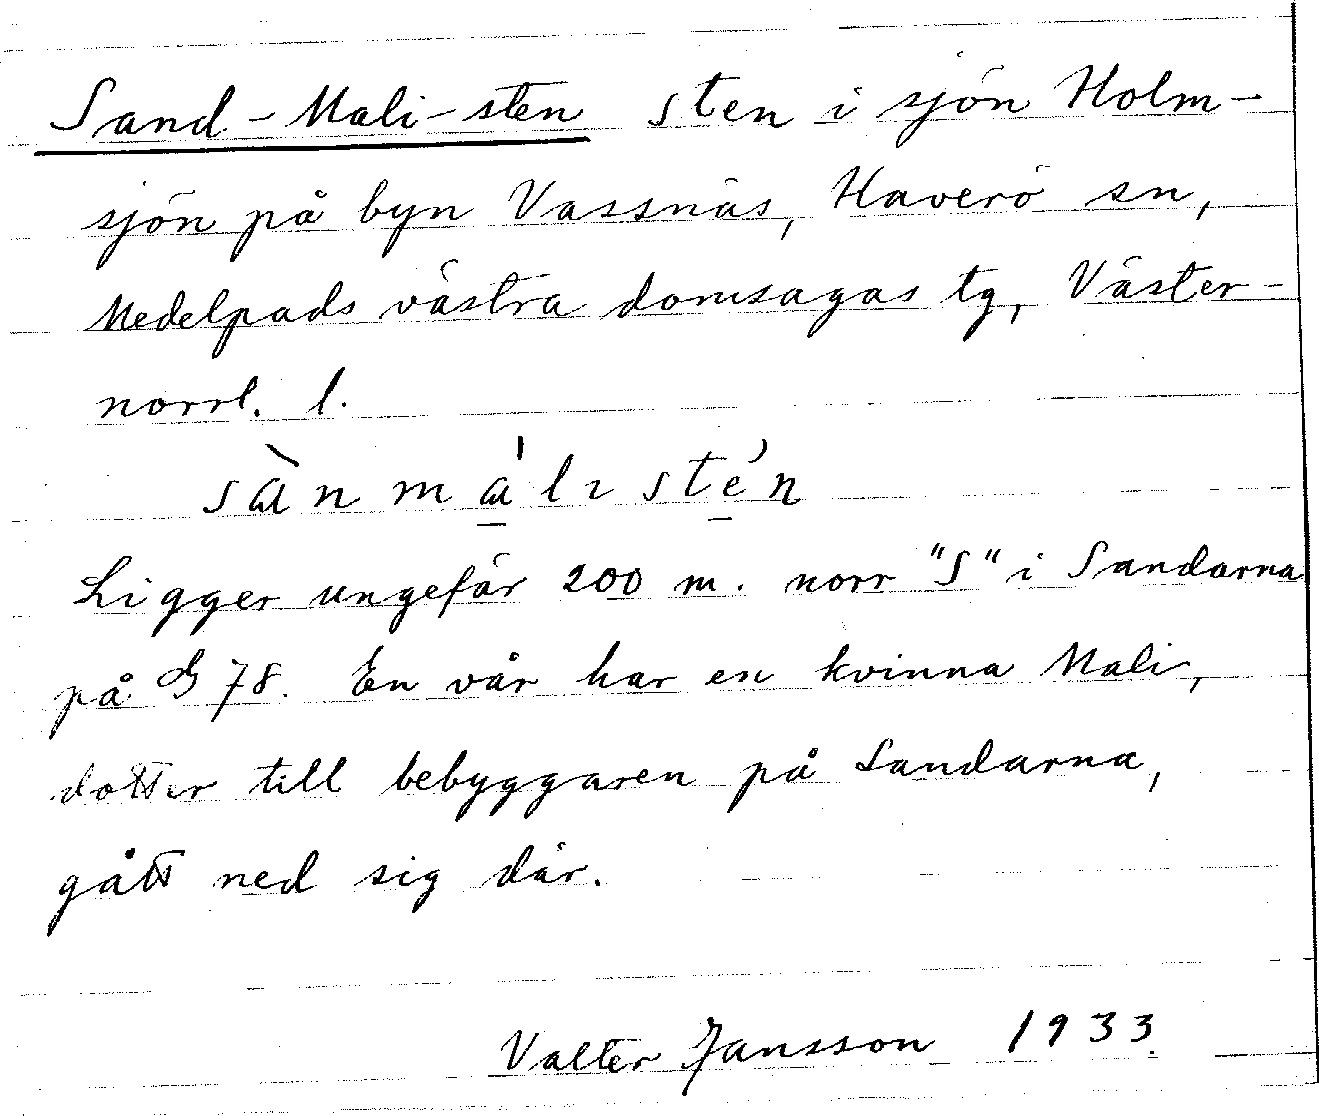 Sand-Mali-sten sten i sjön Holm-
sjön på byn Vassnäs, Haverö sn,
Medelpads västra domsagas tg, Väster-
norrl. l.
sànmá̱lısté̱n
Ligger ungefär 200 m. norr "S" i Sandarna
på G 78. En vår har en kvinna Mali,
dotter till bebyggaren på Sandarna,
gått ned sig där.
Valter Jansson 1933.